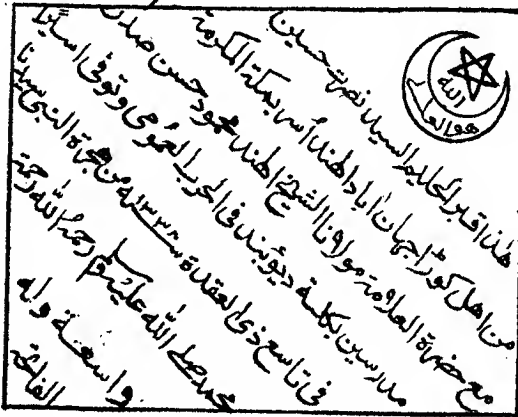 الله
هذا قبر الحکیم السید نصرت حسین
من اهل کوڑا جهان اباد الهند أسر بمکة المکرمة
مع حضرة العلامة مولانا الشیخ الهند محمود حسن صدر
مدرسین بکلسة دیوبند فی الحرب العمومی وتوفی اسیرا
فی تاسع ذی العقدة سنه ۱۳۳۸ من هجرة النبی سیدنا
محمد صلی الله علیه وسلم رحمه الله رحمة
واسعة وله
الفاتحة